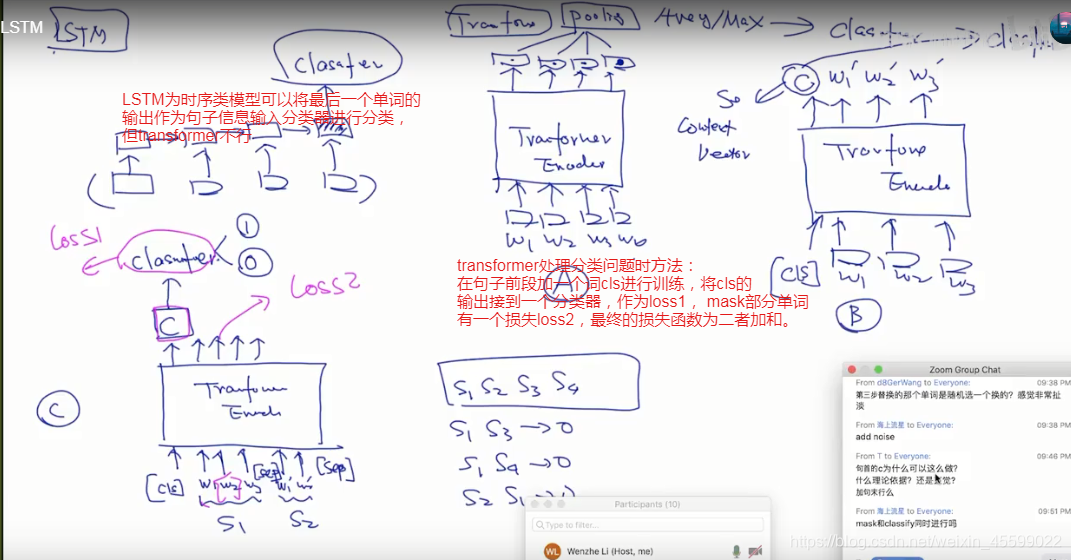 LSTM
LSTM
Classifier
LSTM为时序类模型可以将最后一个单词的
输出作为句子信息输入分类器进行分类,
但transformer不行
pooling
Avey/Max
Tranformer
Encoder
W1 W2 W3
A
transformer处理分类问题时方法:
在句子前段加一个词cls进行训练,将cls的
输出接到一个分类器,作为loss1, mask部分单词
有一个损失loss2,最终的损失函数为二者加和。
C W1' W2' W3'
Context
Vector
[CLS] W1 W2 W3
B
Loss1
1
0
Loss2
C
C
[CLS] W1 W2 W3 [Sep]
S1 S2
S1 S2 S3 S4
S1 S3 → 0
S1 S4 → 0
S2 S1 →
Zoom Group Chat
From d8GerWang to Everyone: 09:38 PM
第三步替换的那个单词是随机选一个换的?感觉非常扯
淡
From 海上流星 to Everyone: 09:38 PM
add noise
From T to Everyone: 09:46 PM
句首的c为什么可以这么做?
什么理论依据?还是直觉?
加句末行么
From 海上流星 to Everyone: 09:51 PM
mask和classify同时进行吗
Participants (10)
Type to filter...
WL Wenzhe Li (Host, me)
https://blog.csdn.net/weixin_45599022